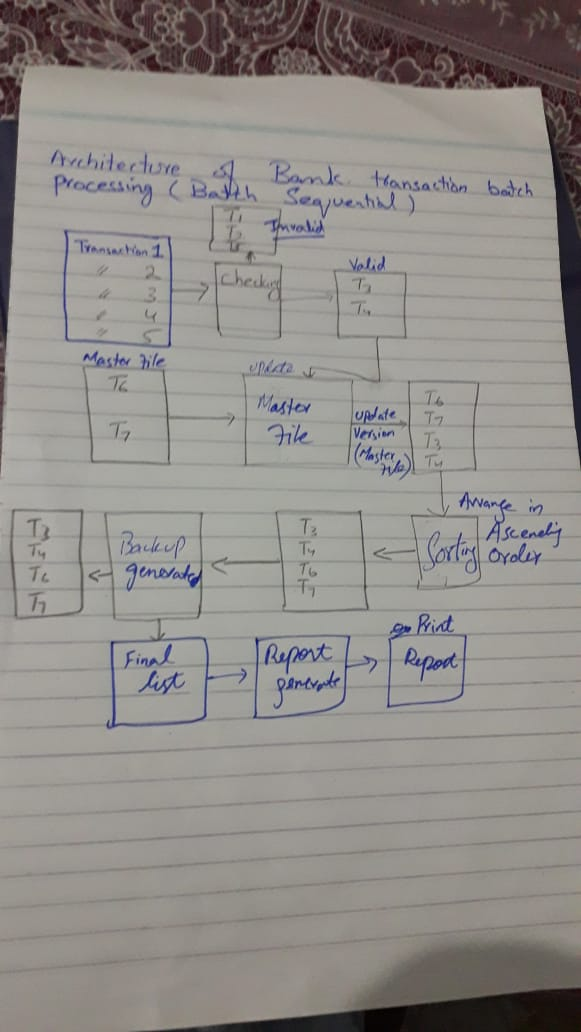 Architecture of Bank transaction batch
processing (Batch Sequential)
T1
T2
T5
Invalid
Transaction 1
〃 2
〃 3
〃 4
〃 5
Checking
Valid
T3
T4
Master File
T6
T7
update
Master
File
update
Version
(Master
File)
T6
T7
T3
T4
Arrange in
Ascending
Order
Sorting
T3
T4
T6
T7
Backup
generated
T3
T4
T6
T7
Final
list
Report
generate
Print
Report